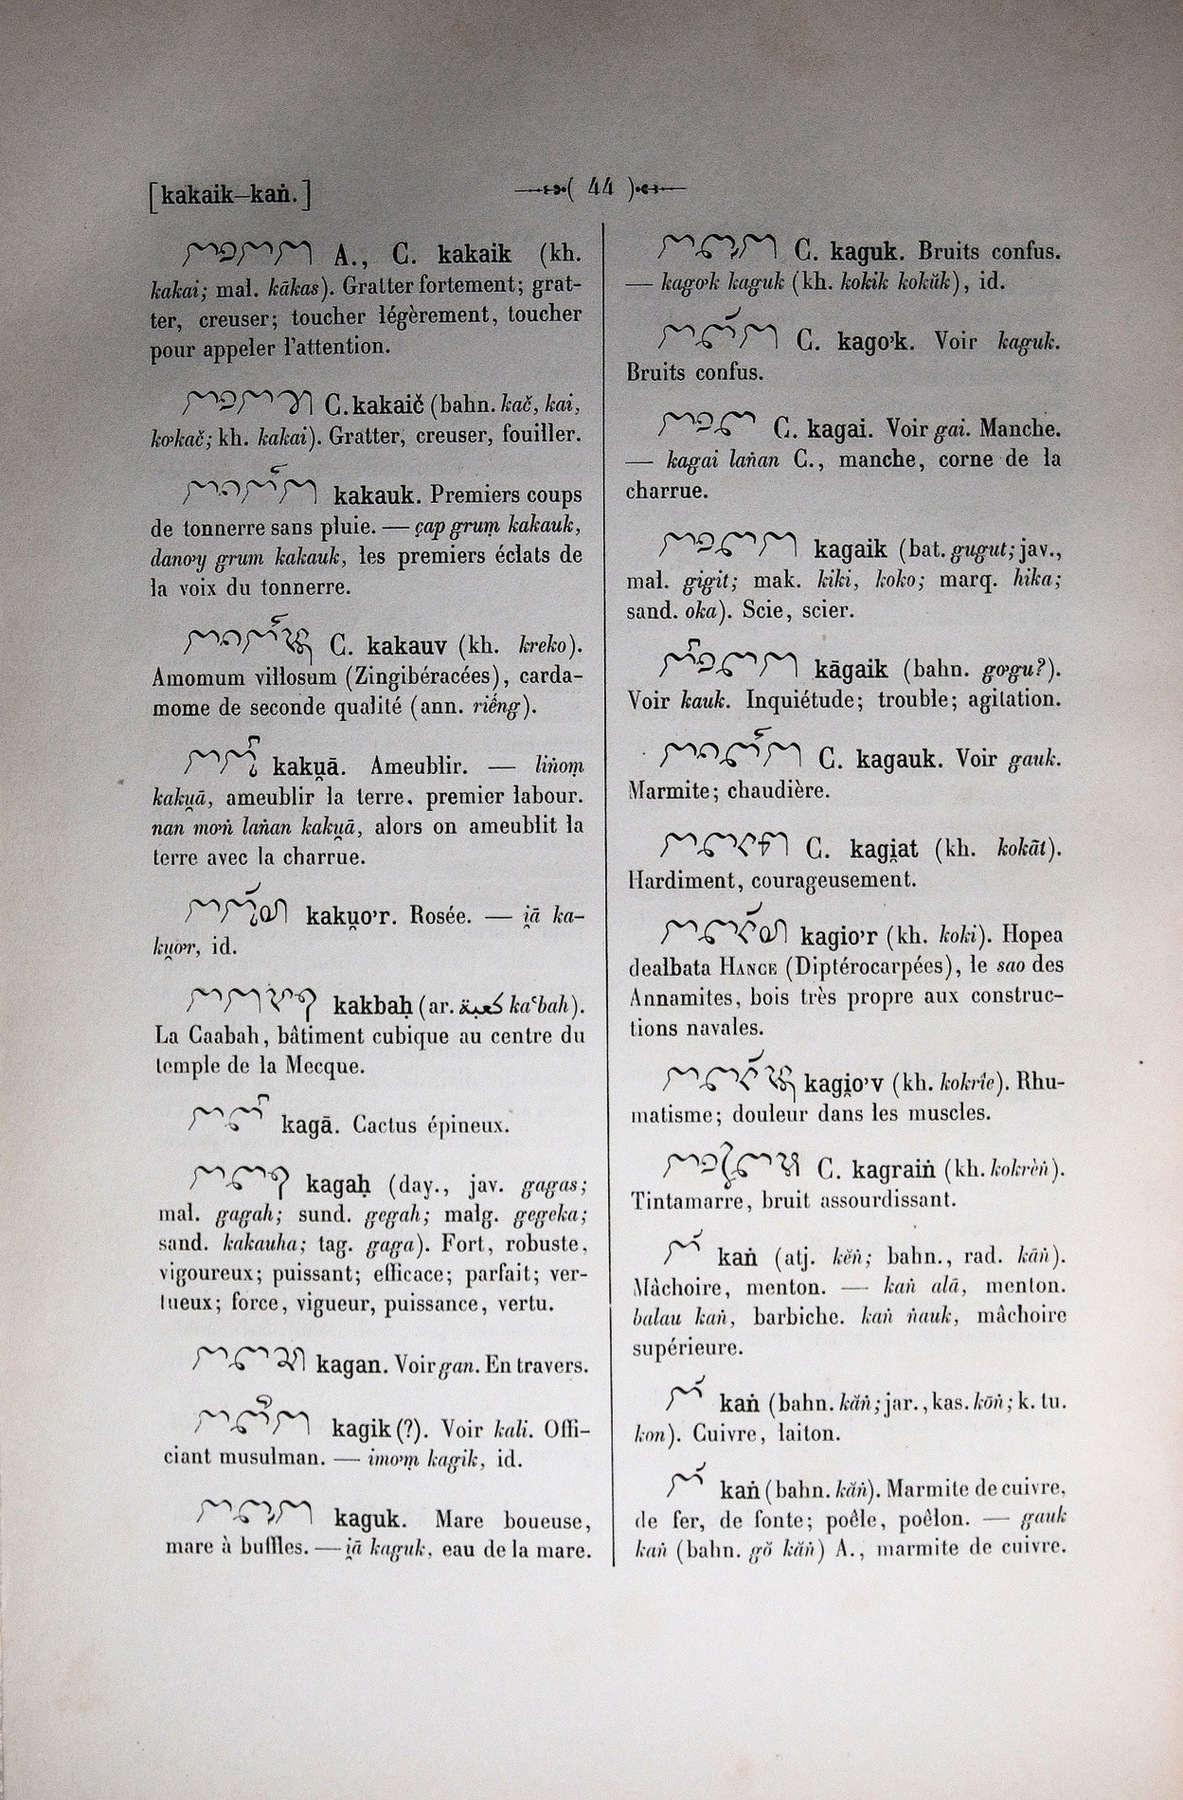 [kakaik–kaṅ.]
( 44 )
A., C. kakaik (kh.
kakai; mal. kākas). Gratter fortement; grat-
ter, creuser; toucher légèrement, toucher
pour appeler l'attention.
C. kakaič (bahn. kač, kai,
ko̓kač; kh. kakai). Gratter, creuser, fouiller.
kakauk. Premiers coups
de tonnerre sans pluie. — çap gruṃ kakauk,
dano̓y grum kakauk, les premiers éclats de
la voix du tonnerre.
C. kakauv (kh. kreko).
Amomum villosum (Zingibéracées), carda-
mome de seconde qualité (ann. riêńg).
kaku̯ā. Ameublir. — liṅoṃ
kaku̯ā, ameublir la terre, premier labour.
nan mo̓ṅ laṅan kaku̯ā, alors on ameublit la
terre avec la charrue.
kaku̯o̓r. Rosée. — i̯ā ka-
ku̯o̓r, id.
kakbaḥ (ar. كعبة kaʿbah).
La Caabah, bâtiment cubique au centre du
temple de la Mecque.
kagā. Cactus épineux.
kagaḥ (day., jav. gagas;
mal. gagah; sund. gegah; malg. gegeka;
sand. kakauha; tag. gaga). Fort, robuste,
vigoureux; puissant; efficace; parfait; ver-
tueux; force, vigueur, puissance, vertu.
kagan. Voir gan. En travers.
kagik (?). Voir kali. Offi-
ciant musulman. — imo̓ṃ kagik, id.
kaguk. Mare boueuse,
mare à buffles. — i̯ā kaguk, eau de la mare.
C. kaguk. Bruits confus.
— kago̓k kaguk (kh. kokik kokŭk), id.
C. kago̓k. Voir kaguk.
Bruits confus.
C. kagai. Voir gai. Manche.
— kagai laṅan C., manche, corne de la
charrue.
kagaik (bat. gugut; jav.,
mal. gigit; mak. kiki, koko; marq. hika;
sand. oka). Scie, scier.
kāgaik (bahn. go̓gu?).
Voir kauk. Inquiétude; trouble; agitation.
C. kagauk. Voir gauk.
Marmite; chaudière.
C. kagi̯at (kh. kokāt).
Hardiment, courageusement.
kagio̓r (kh. koki). Hopea
dealbata Hance (Diptérocarpées), le sao des
Annamites, bois très propre aux construc-
tions navales.
kagi̯o̓v (kh. kokrîe). Rhu-
matisme; douleur dans les muscles.
C. kagraiṅ (kh. kokrèṅ).
Tintamarre, bruit assourdissant.
kaṅ (atj. kĕṅ; bahn., rad. kāṅ).
Mâchoire, menton. — kaṅ alā, menton.
balau kaṅ, barbiche. kaṅ ṅauk, mâchoire
supérieure.
kaṅ (bahn. kăṅ; jar., kas. kōṅ; k. tu.
kon). Cuivre, laiton.
kaṅ (bahn. kăṅ). Marmite de cuivre,
de fer, de fonte; poêle, poêlon. — gauk
kaṅ (bahn. gŏ kăṅ) A., marmite de cuivre.